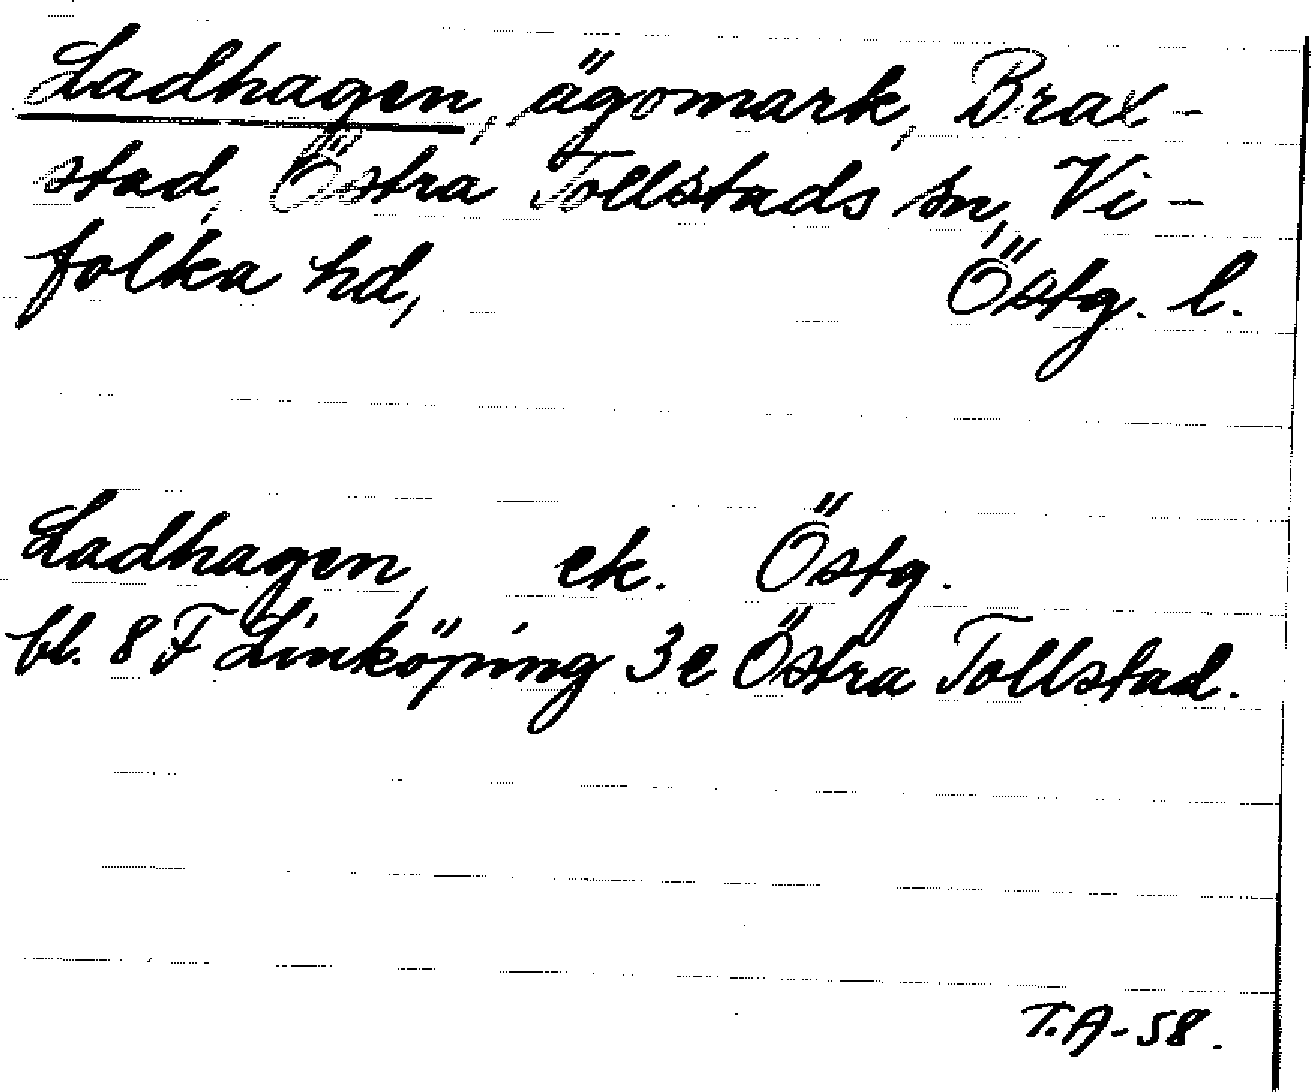 Ladhagen, ägomark, Brax-
stad, Östra Tollstads sn, Vi-
folka hd, Östg. l.
Ladhagen, ek. Östg.
bl. 8 F Linköping 3e Östra Tollstad.
T.A-58.